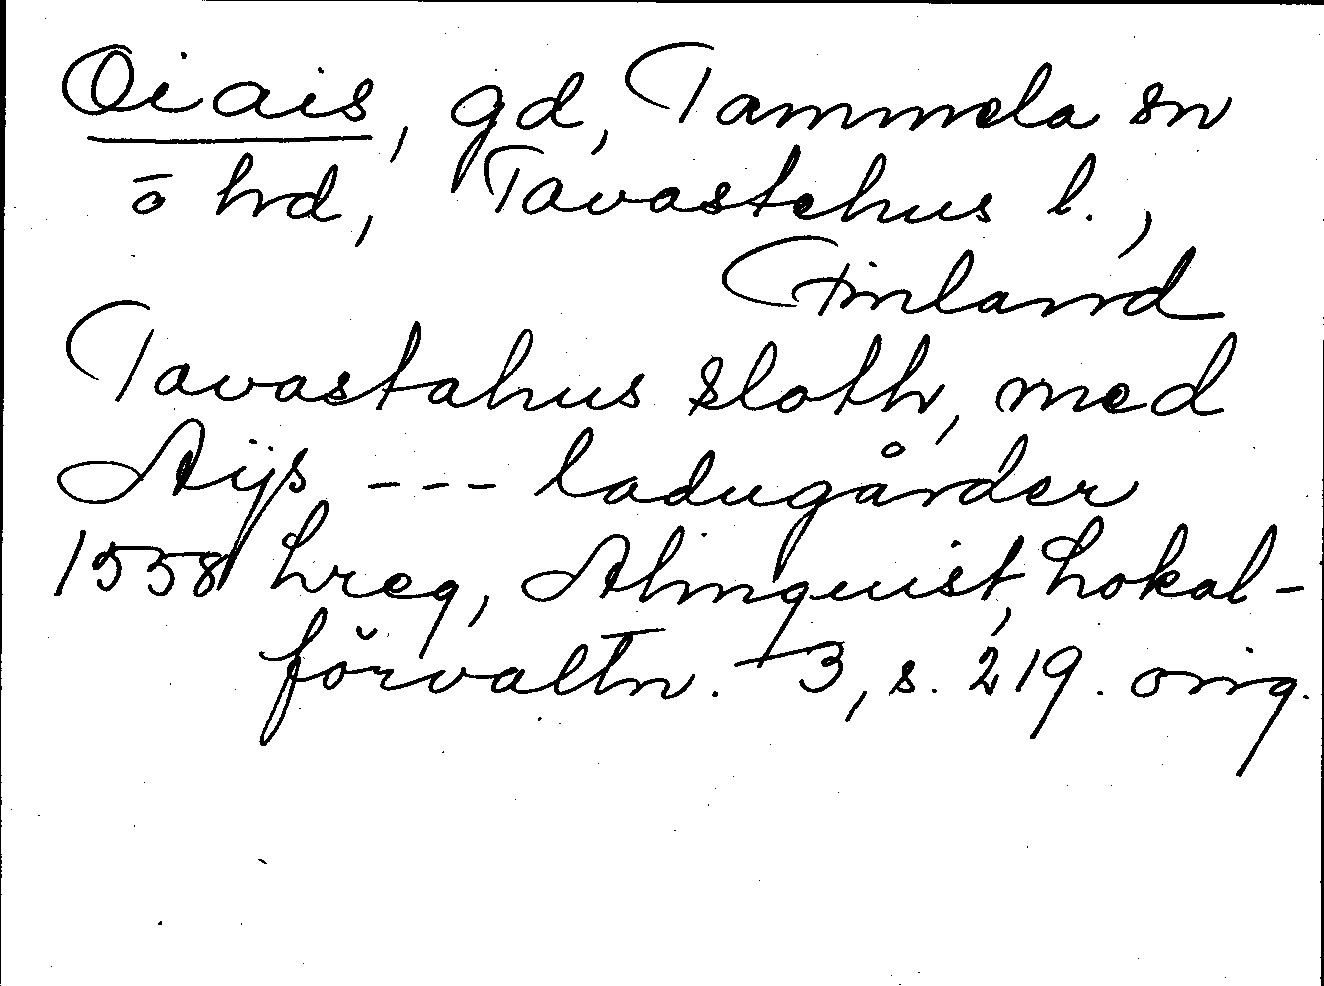 Oiais, gd, Tammela sn
o hrd, Tavastehus l.,
Finland
Tavastahus sloth, med
Aijs --- ladugårder
1558 hreg, Almquist, Lokal-
förvaltn. 3, s. 219. orig.